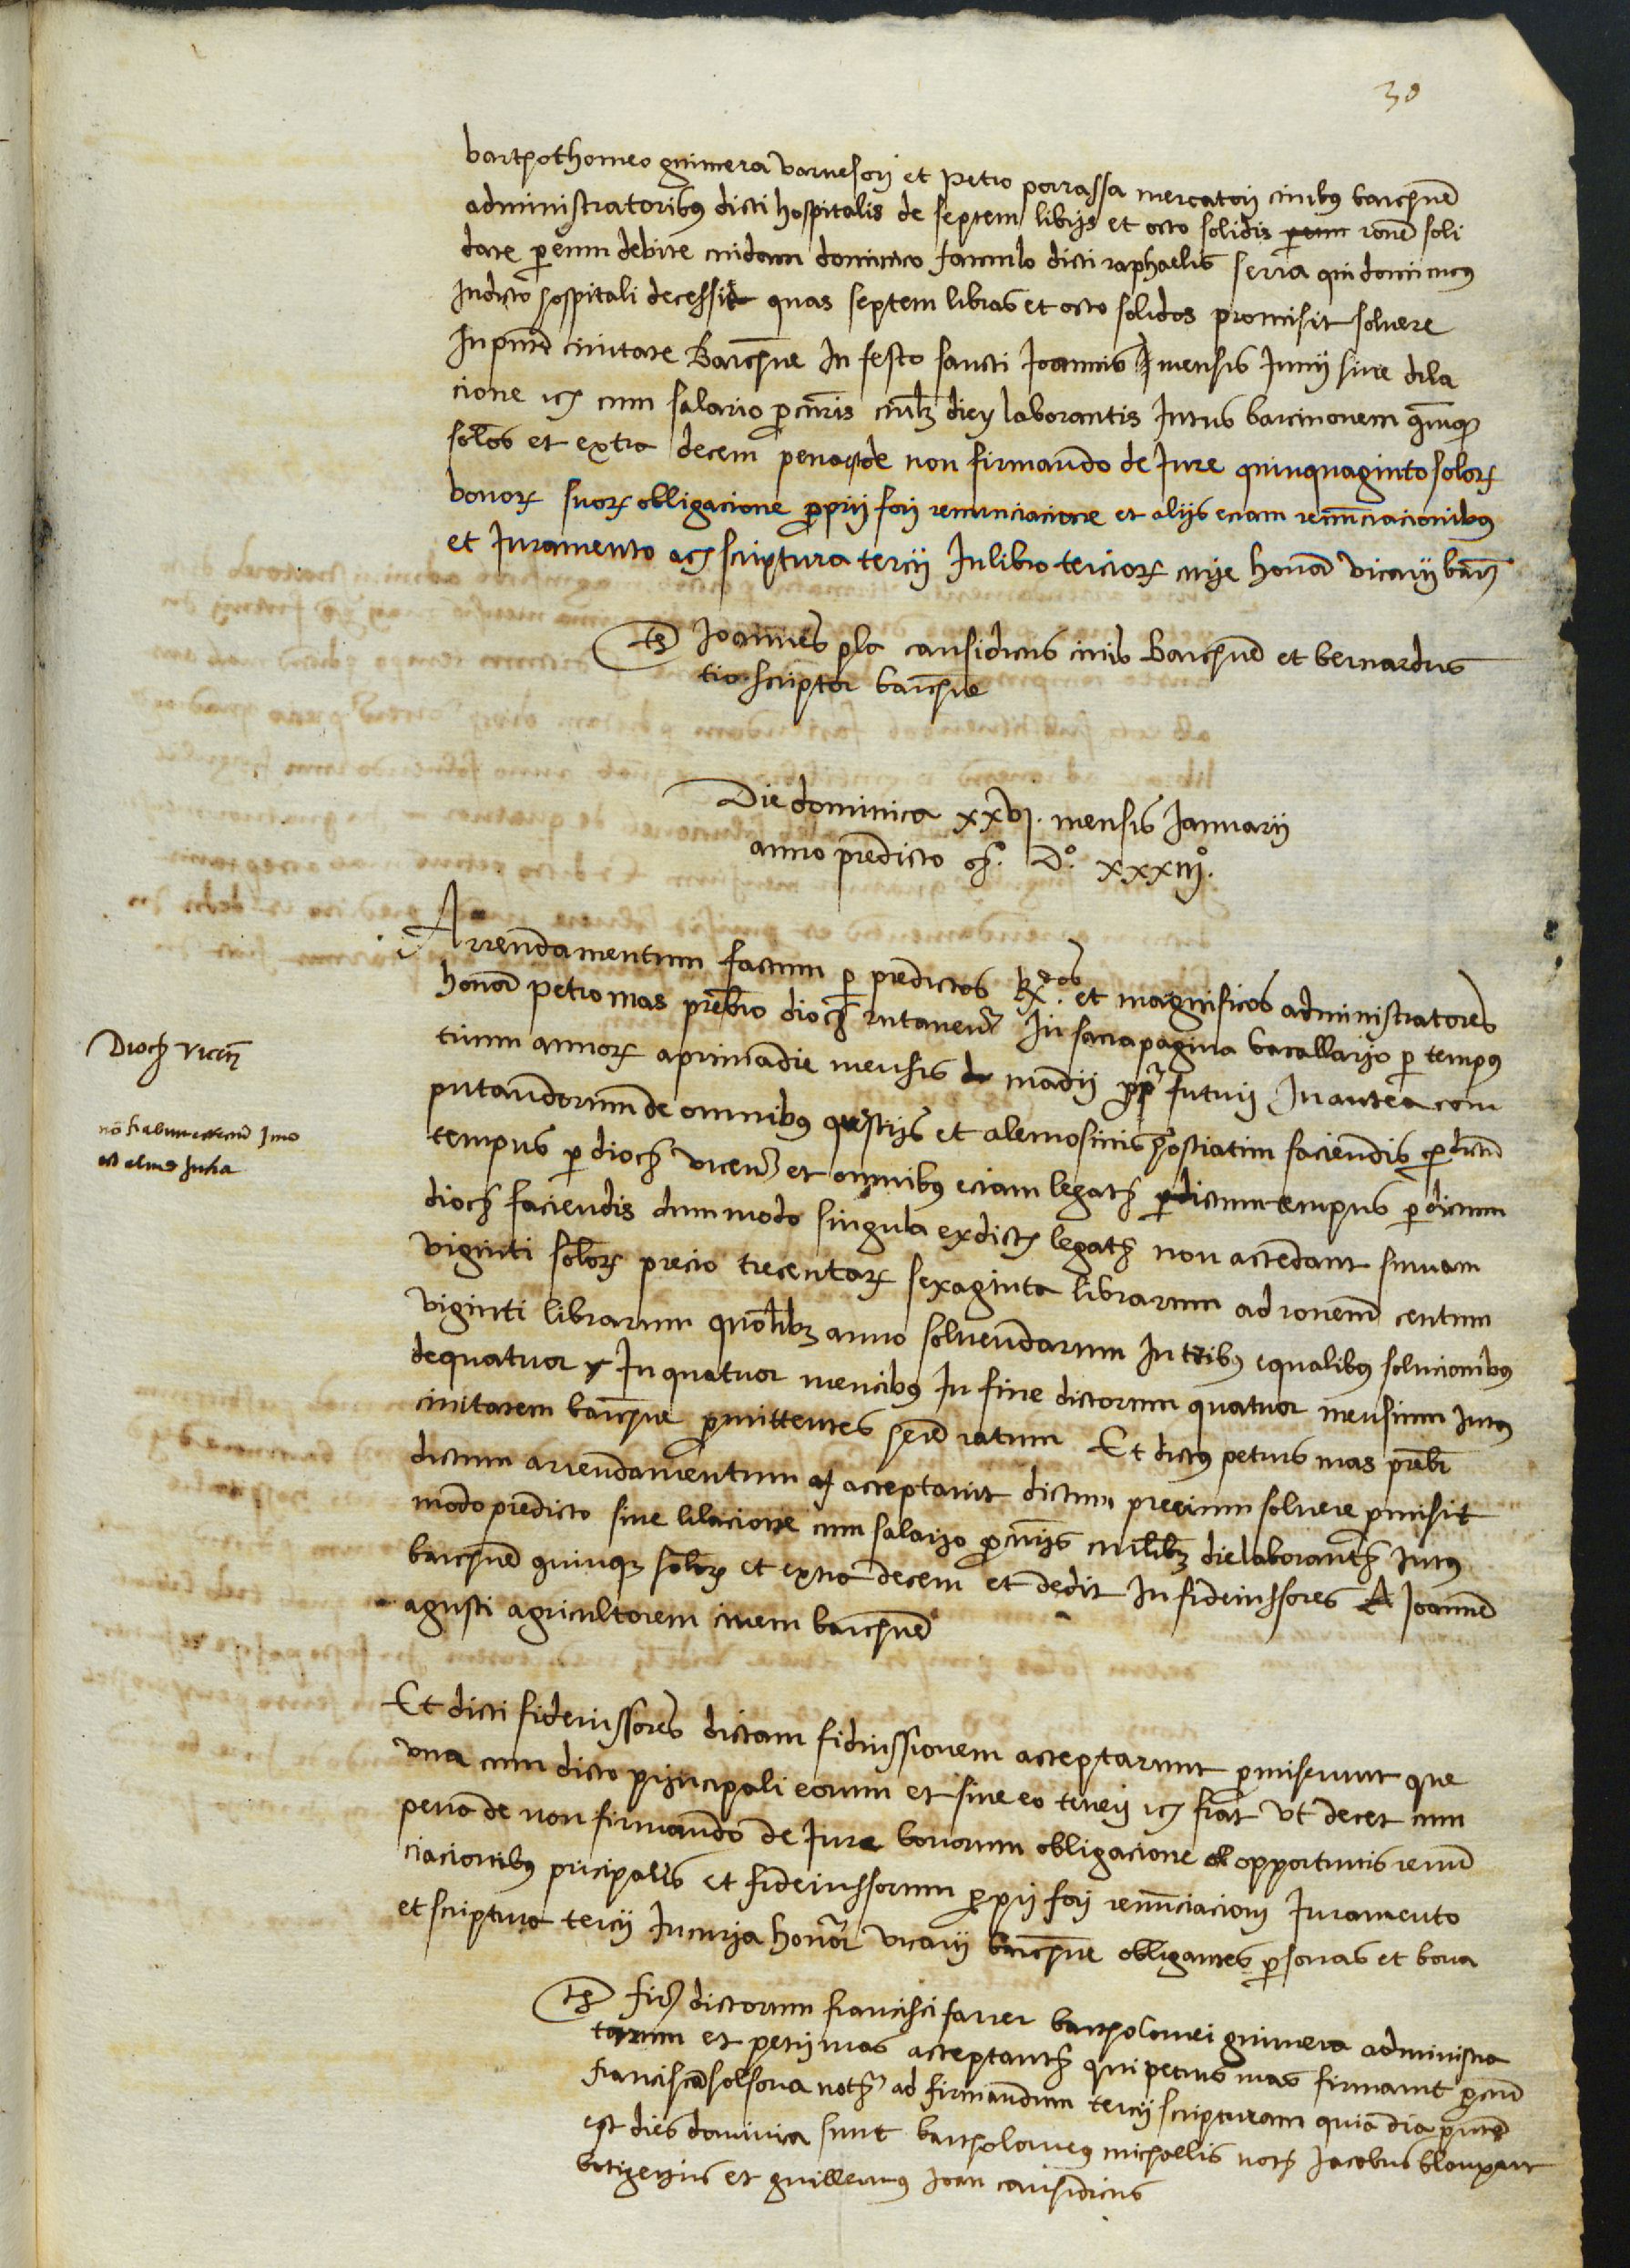 30
barthothomeo guimera varvesorj et petro porrassa mercatorj civibus barchne
administratoribus dicti hospitalis de septem libris et octo solidis ronē soli
dare per eum debite cuidam dominico famulo dicti raphaelis serra qui dominicus
In dicto hospitali decessit quas septem libras et octo solidos promisit solvere
In pnti civitate Barchne In festo sancti Joannis mensis Junij sine dila
cione etc cum salario procuris cuilibet diei laborantis Intus barcinonem quinque
solos et extra decem pena de non firmando de Jure quinquaginta solor
bonor suor obligacione proprij forj renunciacione et alijs eciam renunciacionibus
et Juramento ac scriptura tercij In libro tercior curie honor vicarij barne
Ts Joannes pla causidicus civis Barchne et bernardus
tio scriptor barchne
Die dominica xxvj. mensis Januarij
anno predicto Mo. Do. xxxiijo.
Arrendamentum factum per predictos Rdos. et magnificos administratores
honor petro mas prebro dioc rutanen In sacra pagina bacallario per tempus
Dioc Vicen
trium annor a prima die mensis madij pp futurj In antea com
putandorum de omnibus questijs et alemosinis hostiatim faciendis per dictum
tempus per dioc vicen et omnibus eciam legatis per dictum tempus per dictam
dioc faciendis dummodo singula ex dictis legatis non actendant sumam
viginti solor precio trecentar sexaginta librarum ad ronem centum
viginti librarum quolibet anno solvendarum In tribus equalibus solucionibus
de quatuor In quatuor mencibus In fine dictorum quatuor mensium Intus
civitatem barchne promittentes ratum Et dictus petrus mas prebr
dictum arrendamentum acceptavit dictum precium solvere promisit
modo predicto sine lilacione cum salario procuris cuilibet die laborantis Intus
barchne quinque solor et extra decem et dedit In fideiussores Joannem
agusti agricultorem civem barchne
Et dicti fideiussores dictam fidiussionem acceptarunt promiserunt que
una cum dicto principali eorum et sine eo tenerj etc fiat ut decet cum
pena de non firmando de Jure bonorum obligacione opportunis renun
ciacionibus pricipalis et fideiussorum proprij forj renunciacionj Juramento
et scriptura tercij In curia honor vicarij barchne obligantes personas et bona
Ts fir dictorum francisci farrer bartholomei guimera administra
torum et petrj mas acceptantis qui petrus mas firmavit procum
franciscum solsona not ad firmandum tercij scripturam quia dia pnte
est dies dominica sunt bartholomeus michaelis not Jacobus blanxart
botigerius et guillermus Joan causidicus